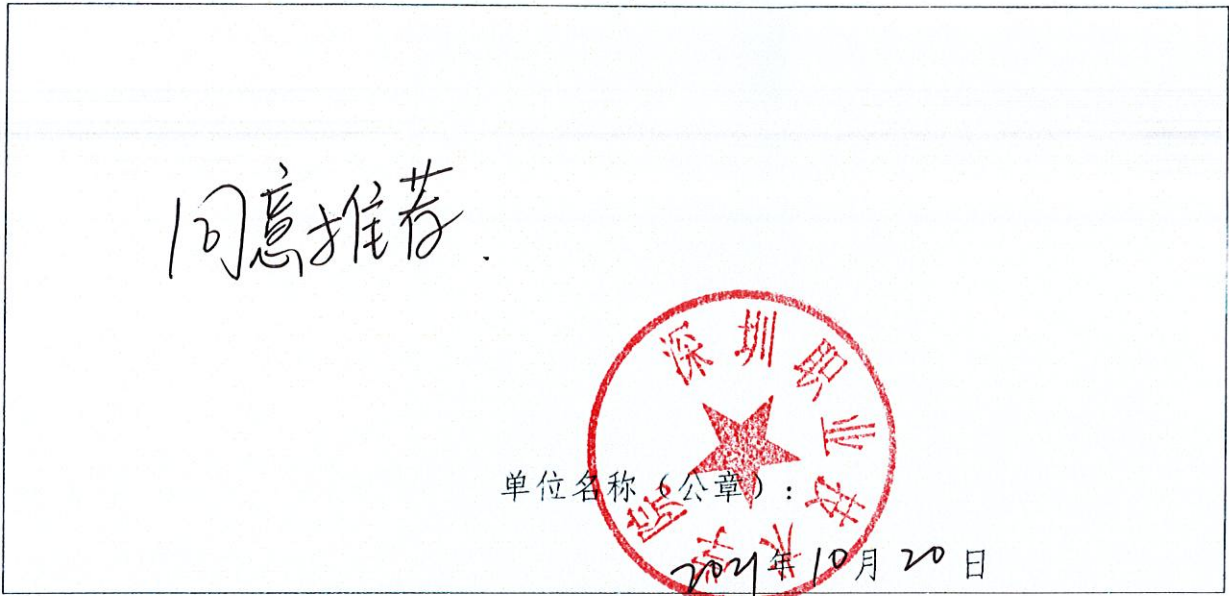 同意推荐.
深圳职业技术学院
单位名称（公章）:
2021年10月20日